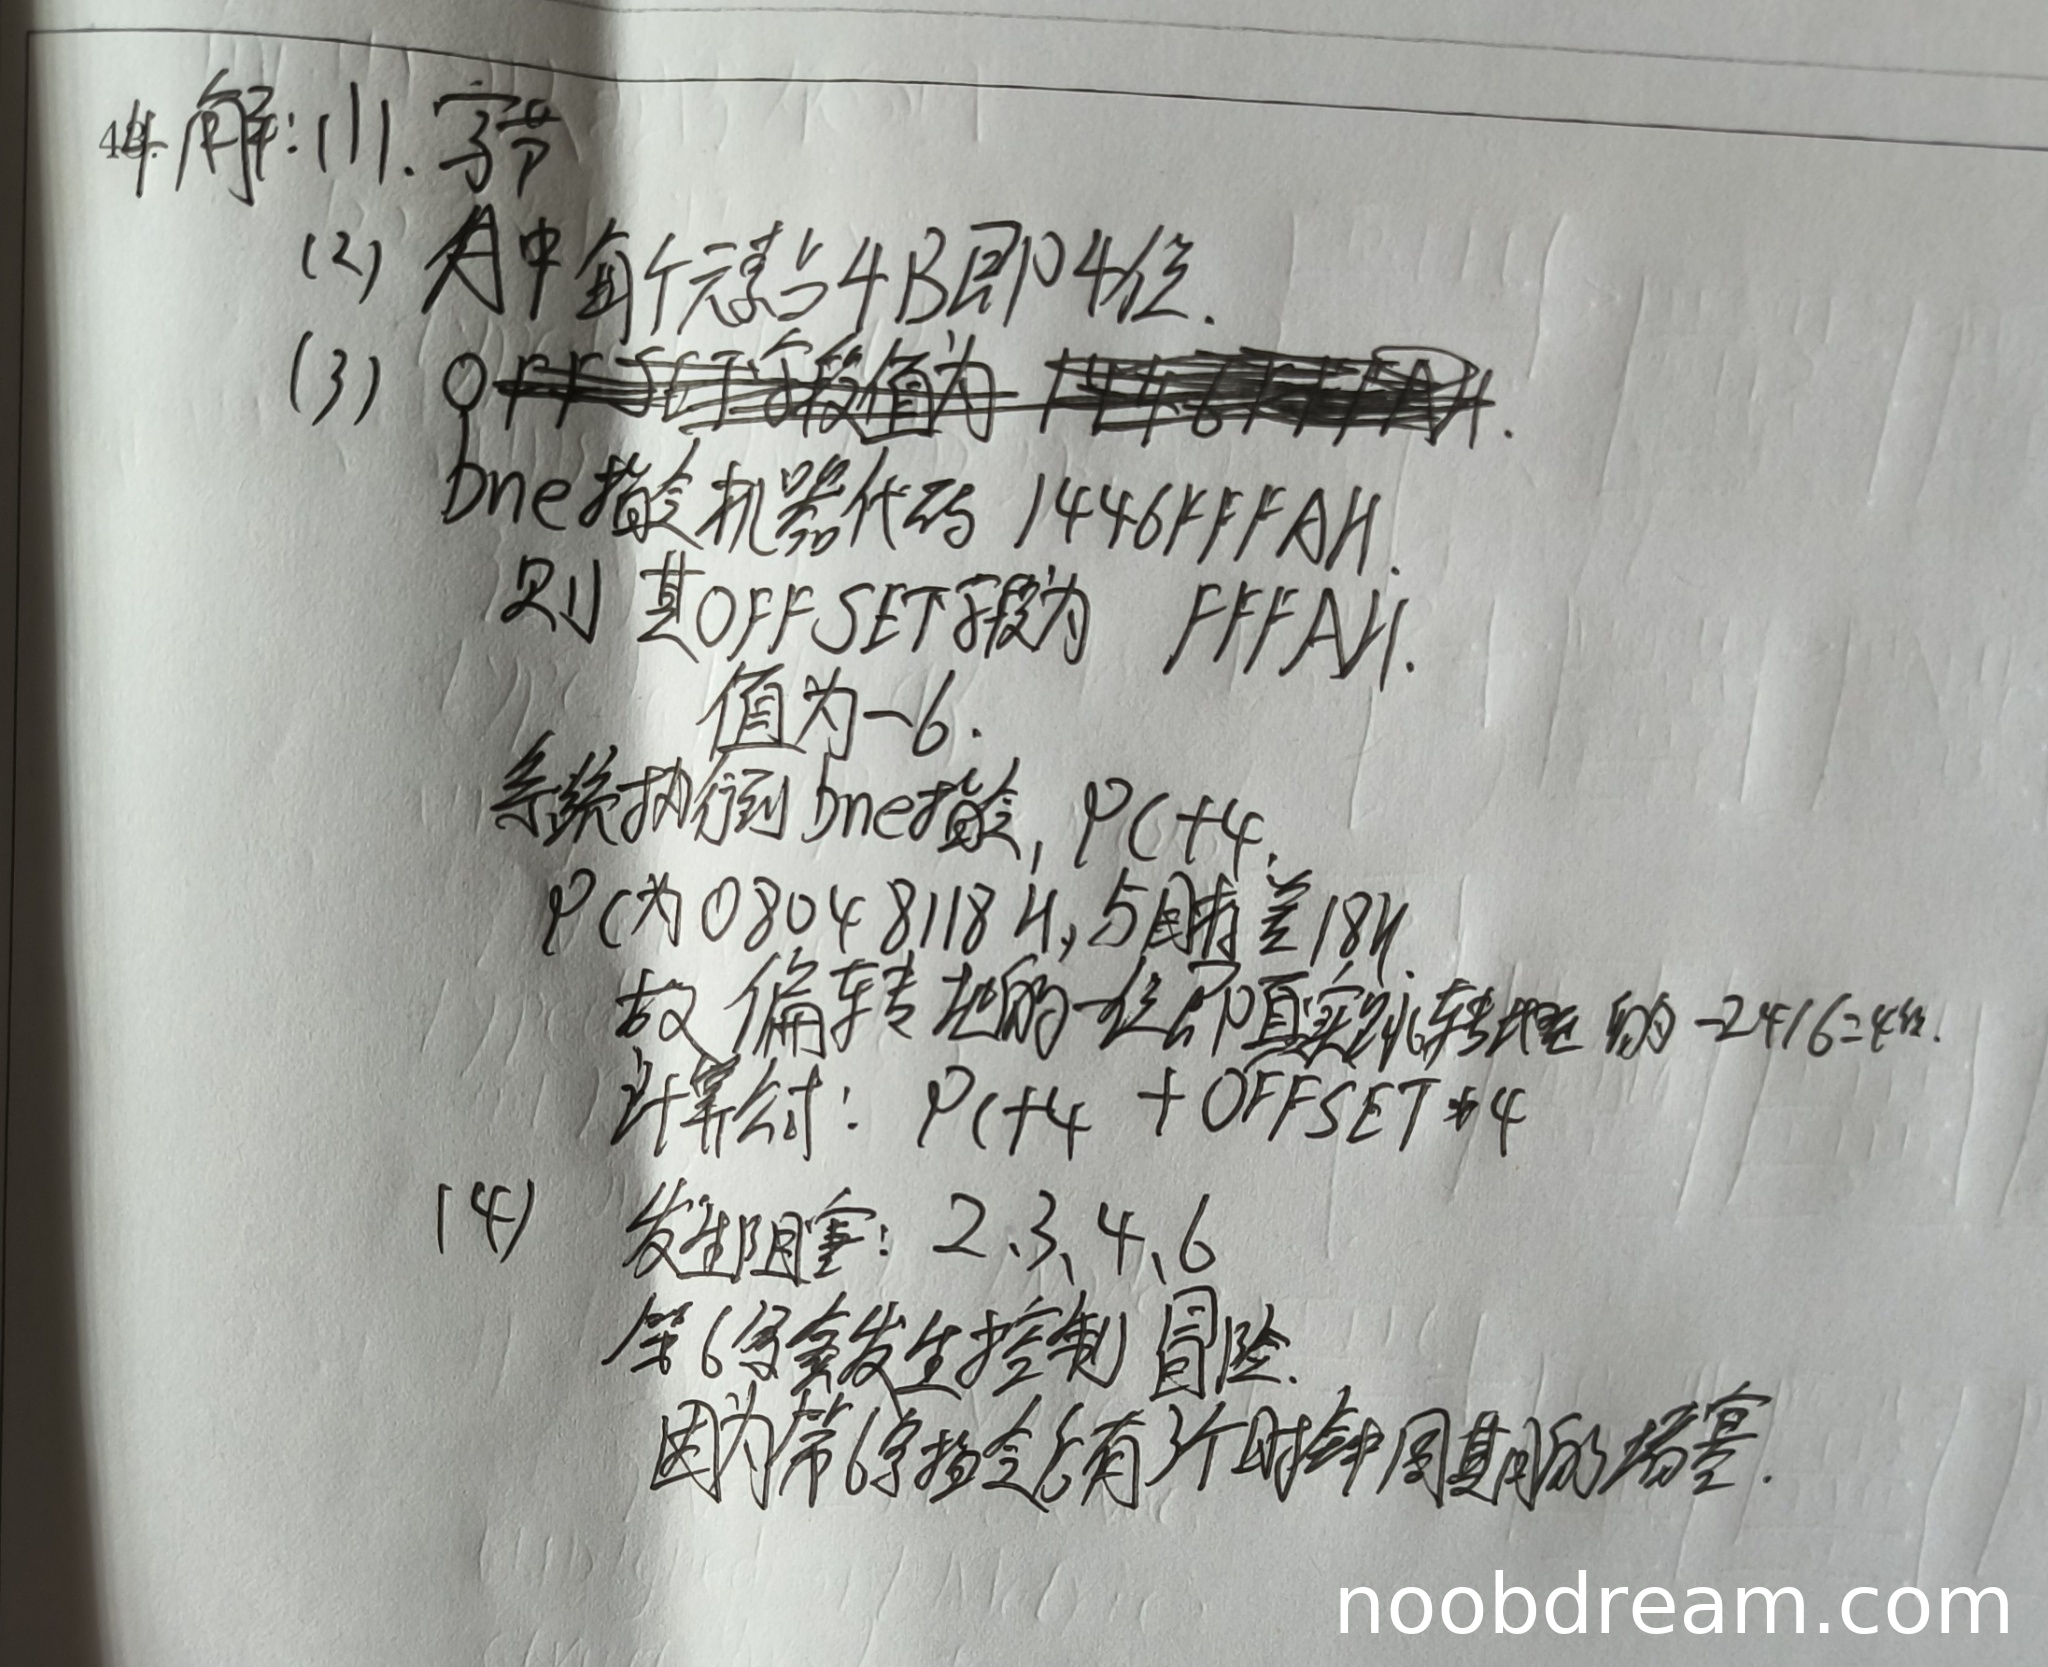 44 解:(1).字节
(2) A中每个元素占4B即4位.
(3) OFFSET字段值为 1446FFFAH.
bne指令机器代码 1446FFFAH.
则 其OFFSET字段为 FFFAH.
值为-6.
系统执行到bne指令, PC+4.
PC为08048118H, 与目标差18H.
故偏转地的一位即真实跳转地址的 -24/6=4位.
计算公式: PC+4 + OFFSET*4
(4) 发生阻塞: 2、3、4、6
第6条会发生控制冒险.
因为第6条指令后有3个时钟周期的堵塞.
noobdream.com